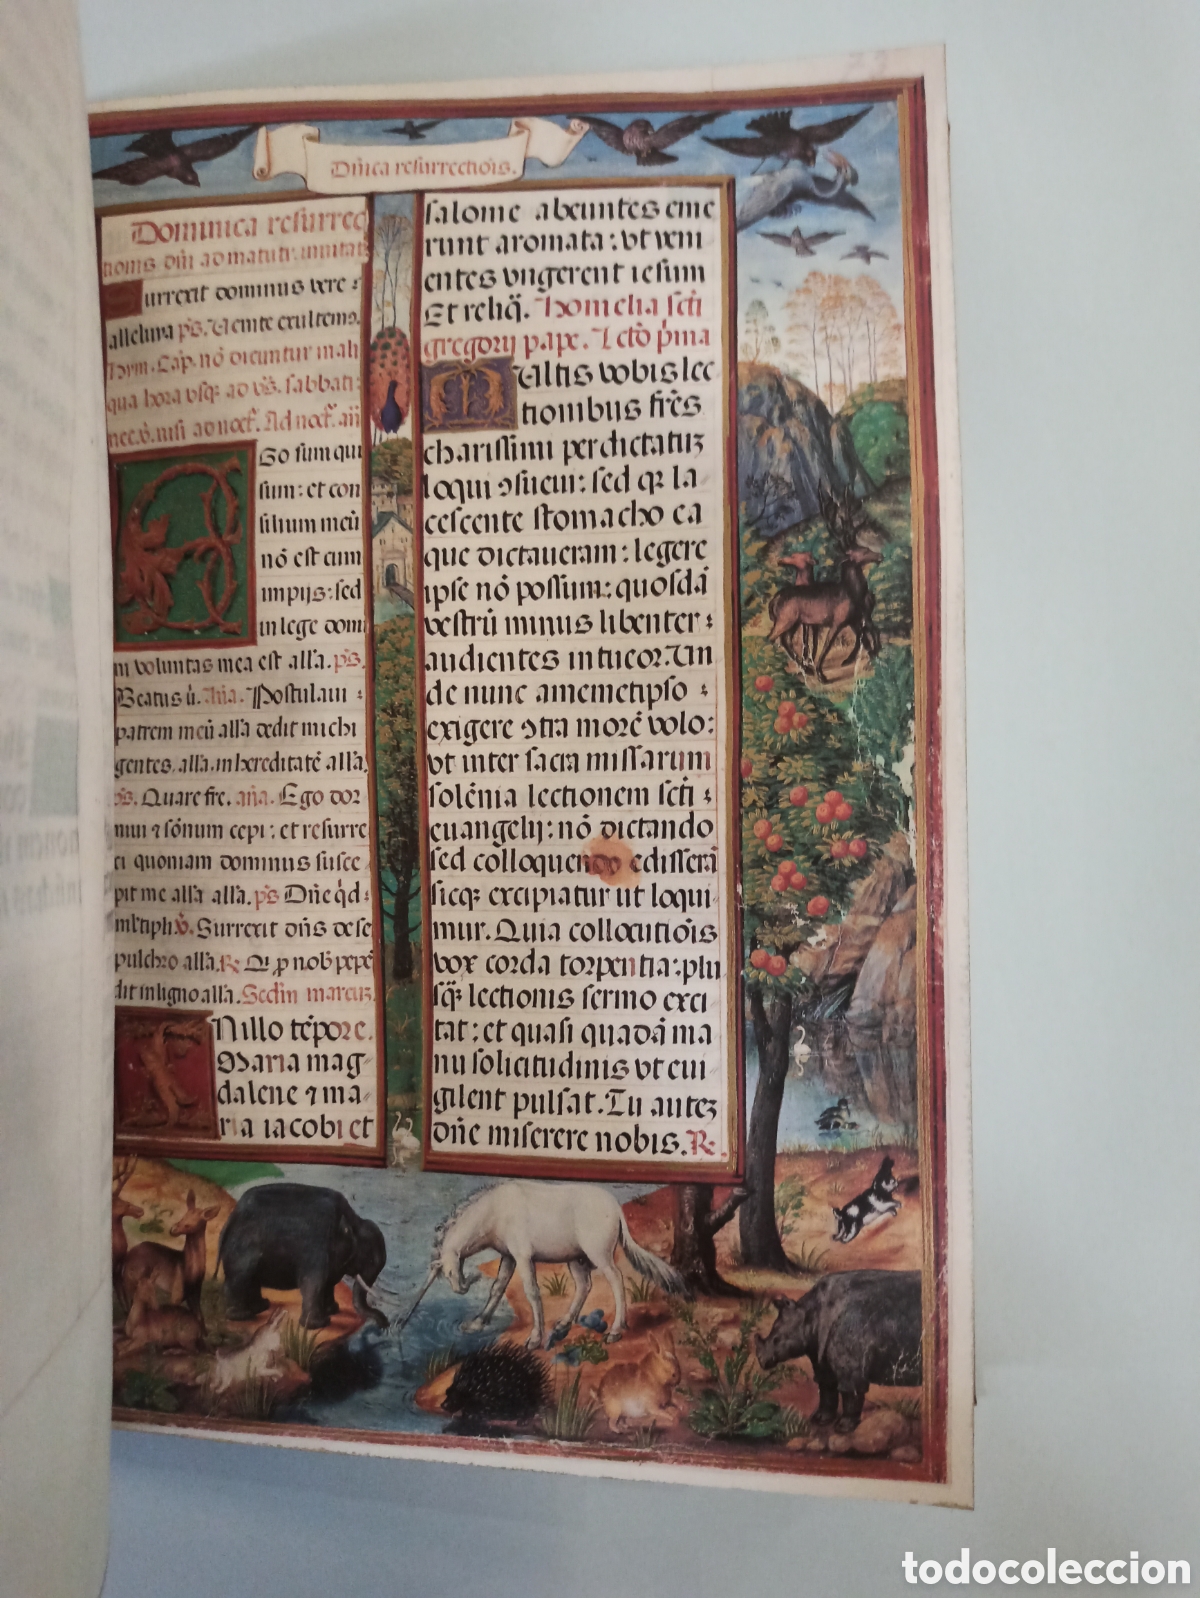 Dn̄ica resurrectiōis.
Dominica resurrec
tionis dn̄i ad matuti. inuitat
Surrexit dominus vere :
alleluya p̄s. Uenite exultemꝰ.
hym. Cap. nō dicuntur in ali
qua hora vsq̄ ad vs̄. sabbati :
nec v̄. nisi ad noct̄. Ad noct̄. an̄
Ego sum qui
sum : et con
silium meū
nō est cum
impijs : sed
in lege domi
ni voluntas mea est alla. p̄s.
Beatus ū. An̄a. Postulaui :
patrem meū alla dedit michi
gentes. alla. in hereditatē alla.
p̄s. Quare fre. an̄a. Ego dor
miui ⁊ sōnum cepi : et resurre
ci quoniam dominus susce
pit me alla alla. p̄s. Dn̄e q̄d
ml̄tipli. v̄. Surrexit dn̄s de se
pulchro alla. R. Qi ꝓ nob̄ pepē
dit in ligno alla. Sedm̄ marcuʒ.
In illo tēpore.
Maria mag-
dalene ⁊ ma-
ria iacobi et
salome abeuntes eme
runt aromata : vt veni
entes vngerent iesum
Et reliq̄. Homelia scti
gregorij pape. Lectō p̄ma
Multis vobis lec
tionibus fr̄es
charissimi per dictatuʒ
loqui ↄsueui : sed qꝛ la-
cescente stomacho ea
que dictaueram : legere
ipse nō possum : quosdā
vestrū minus libenter :
audientes intueor. Un
de nunc a memetipso :
exigere ↄtra morē volo :
vt inter sacra missarum
solēnia lectionem scti :
euangelij : nō dictando
sed colloquendo edisserā
sicqꝫ excipiatur ut loqui-
mur. Quia collocutiōis
vox corda torpentia : plu
sq̄ꝫ lectionis sermo exci
tat : et quasi quadā ma
nu solicitudinis vt eui-
gilent pulsat. Tu auteʒ
dn̄e miserere nobis. R.
todocoleccion